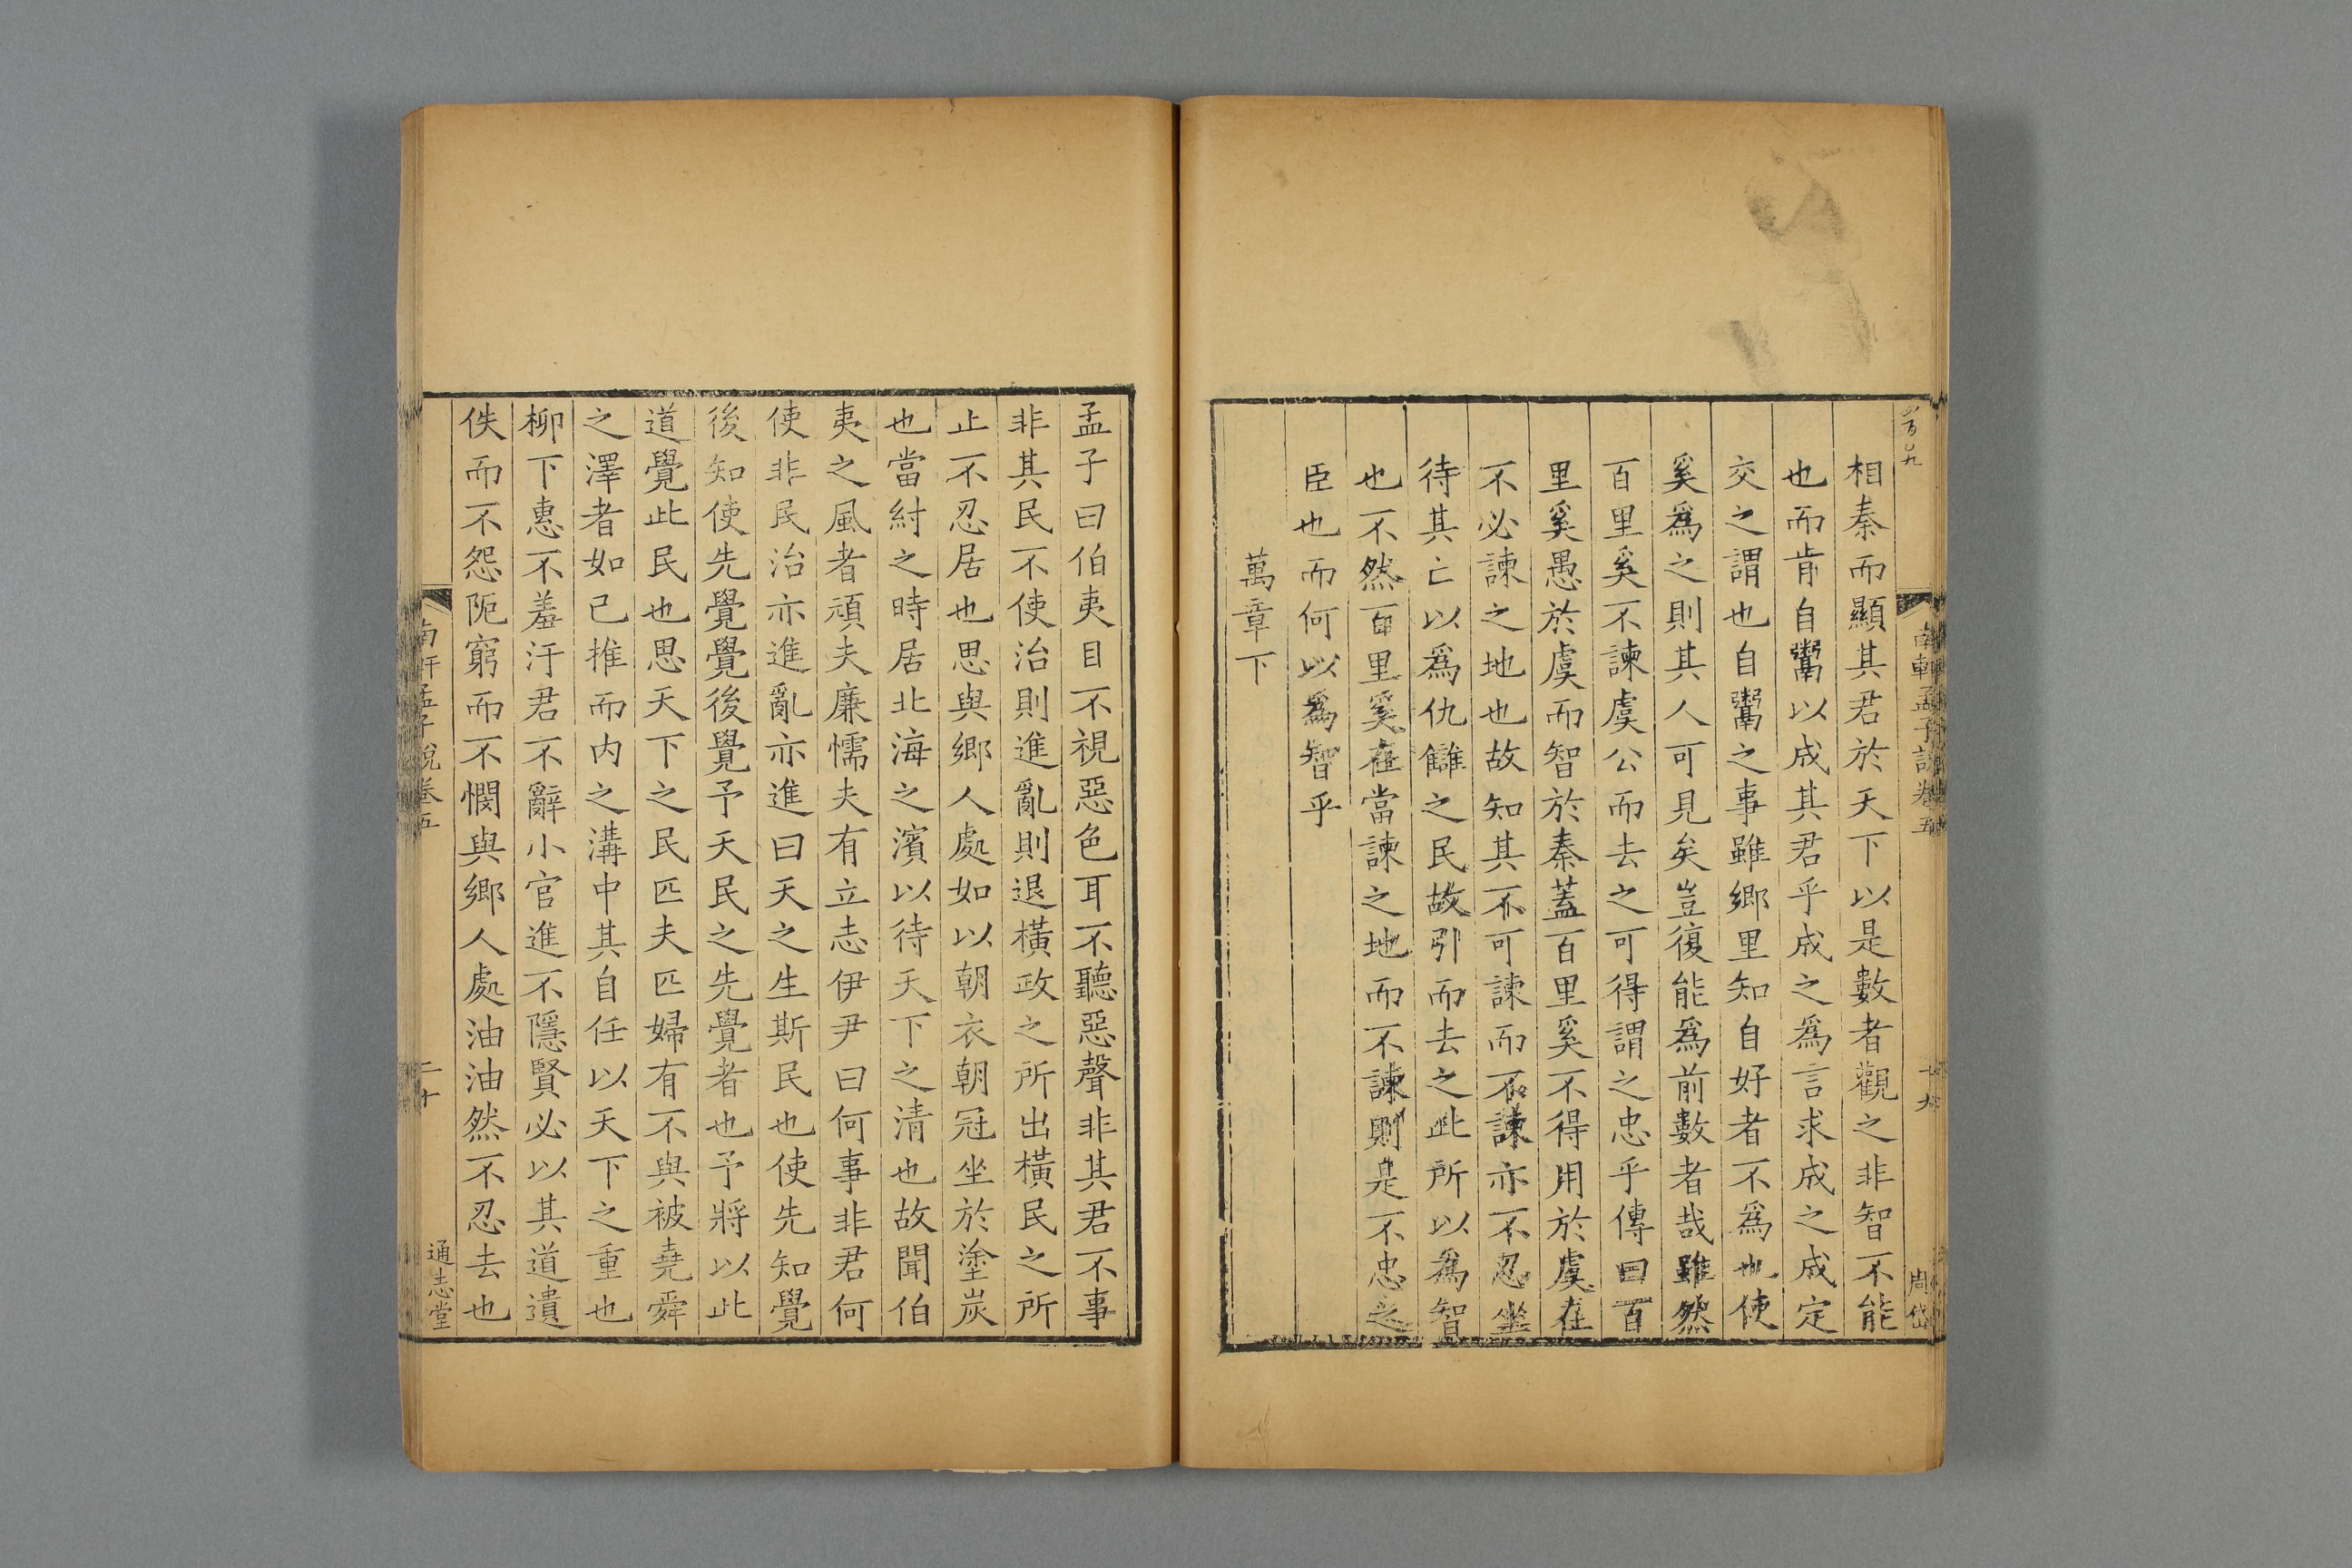 相秦而顯其君於天下以是數者觀之非智不能
也而肯自鬻以成其君乎成之爲言求成之成定
交之謂也自鬻之事雖鄉里知自好者不爲也使
奚爲之則其人可見矣豈復能爲前數者哉雖然
百里奚不諫虞公而去之可得謂之忠乎傳曰百
里奚愚於虞而智於秦蓋百里奚不得用於虞在
不必諫之地也故知其不可諫而不諫亦不忍坐
待其亡以爲仇讎之民故引而去之此所以爲智
也不然百里奚在當諫之地而不諫則是不忠之
臣也而何以爲智乎
萬章下
南軒孟子說卷五
十九
周岱
孟子曰伯夷目不視惡色耳不聽惡聲非其君不事
非其民不使治則進亂則退橫政之所出橫民之所
止不忍居也思與鄉人處如以朝衣朝冠坐於塗炭
也當紂之時居北海之濱以待天下之清也故聞伯
夷之風者頑夫廉懦夫有立志伊尹曰何事非君何
使非民治亦進亂亦進曰天之生斯民也使先知覺
後知使先覺覺後覺予天民之先覺者也予將以此
道覺此民也思天下之民匹夫匹婦有不與被堯舜
之澤者如己推而內之溝中其自任以天下之重也
柳下惠不羞汙君不辭小官進不隱賢必以其道遺
佚而不怨阨窮而不憫與鄉人處油油然不忍去也
南軒孟子說卷五
二十
通志堂